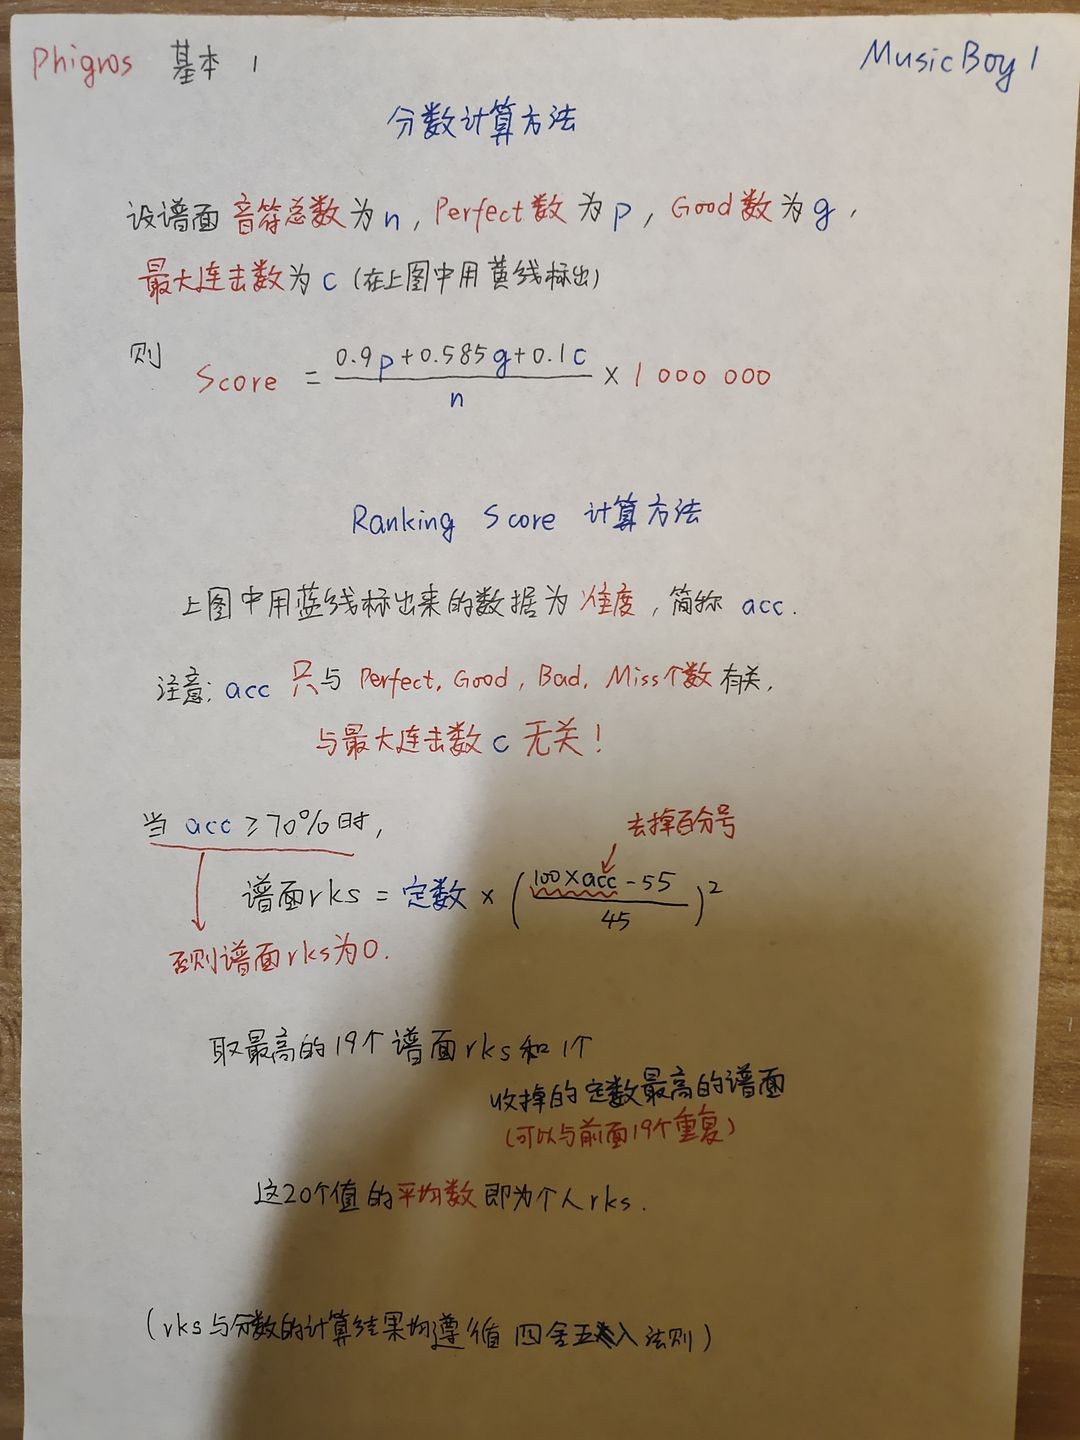 Phigros 基本 1
MusicBoy 1
分数计算方法
设谱面音符总数为n, Perfect数为p, Good数为g,
最大连击数为c (在上图中用黄线标出)
则
Score = (0.9p+0.585g+0.1c)/n × 1 000 000
Ranking Score 计算方法
上图中用蓝线标出来的数据为准度,简称 acc.
注意: acc 只与 Perfect, Good, Bad, Miss个数有关,
与最大连击数c无关!
当 acc ≥70%时,
去掉百分号
谱面rks = 定数 × ((100×acc-55)/45)²
否则谱面rks为0.
取最高的19个谱面rks和1个
收掉的定数最高的谱面
(可以与前面19个重复)
这20个值的平均数即为个人rks.
(rks与分数的计算结果均遵循四舍五入法则)